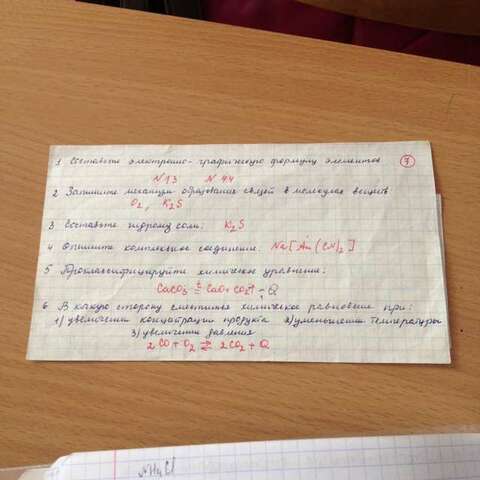 1 Составьте электронно-графическую формулу элементов
7
N 13 N 44
2 Запишите механизм образования связей в молекулах веществ
O₂, K₂S
3 Составьте гидролиз соли: K₂S
4 Опишите комплексное соединение: Na[Au(CN)₂]
5 Проклассифицируйте химическое уравнение:
CaCO₃ ⇄ CaO + CO₂↑ - Q
6 В какую сторону сместится химическое равновесие при:
1) увеличении концентрации продукта 2) уменьшении температуры
3) увеличении давления
2CO + O₂ ⇄ 2CO₂ + Q
NH₄Cl